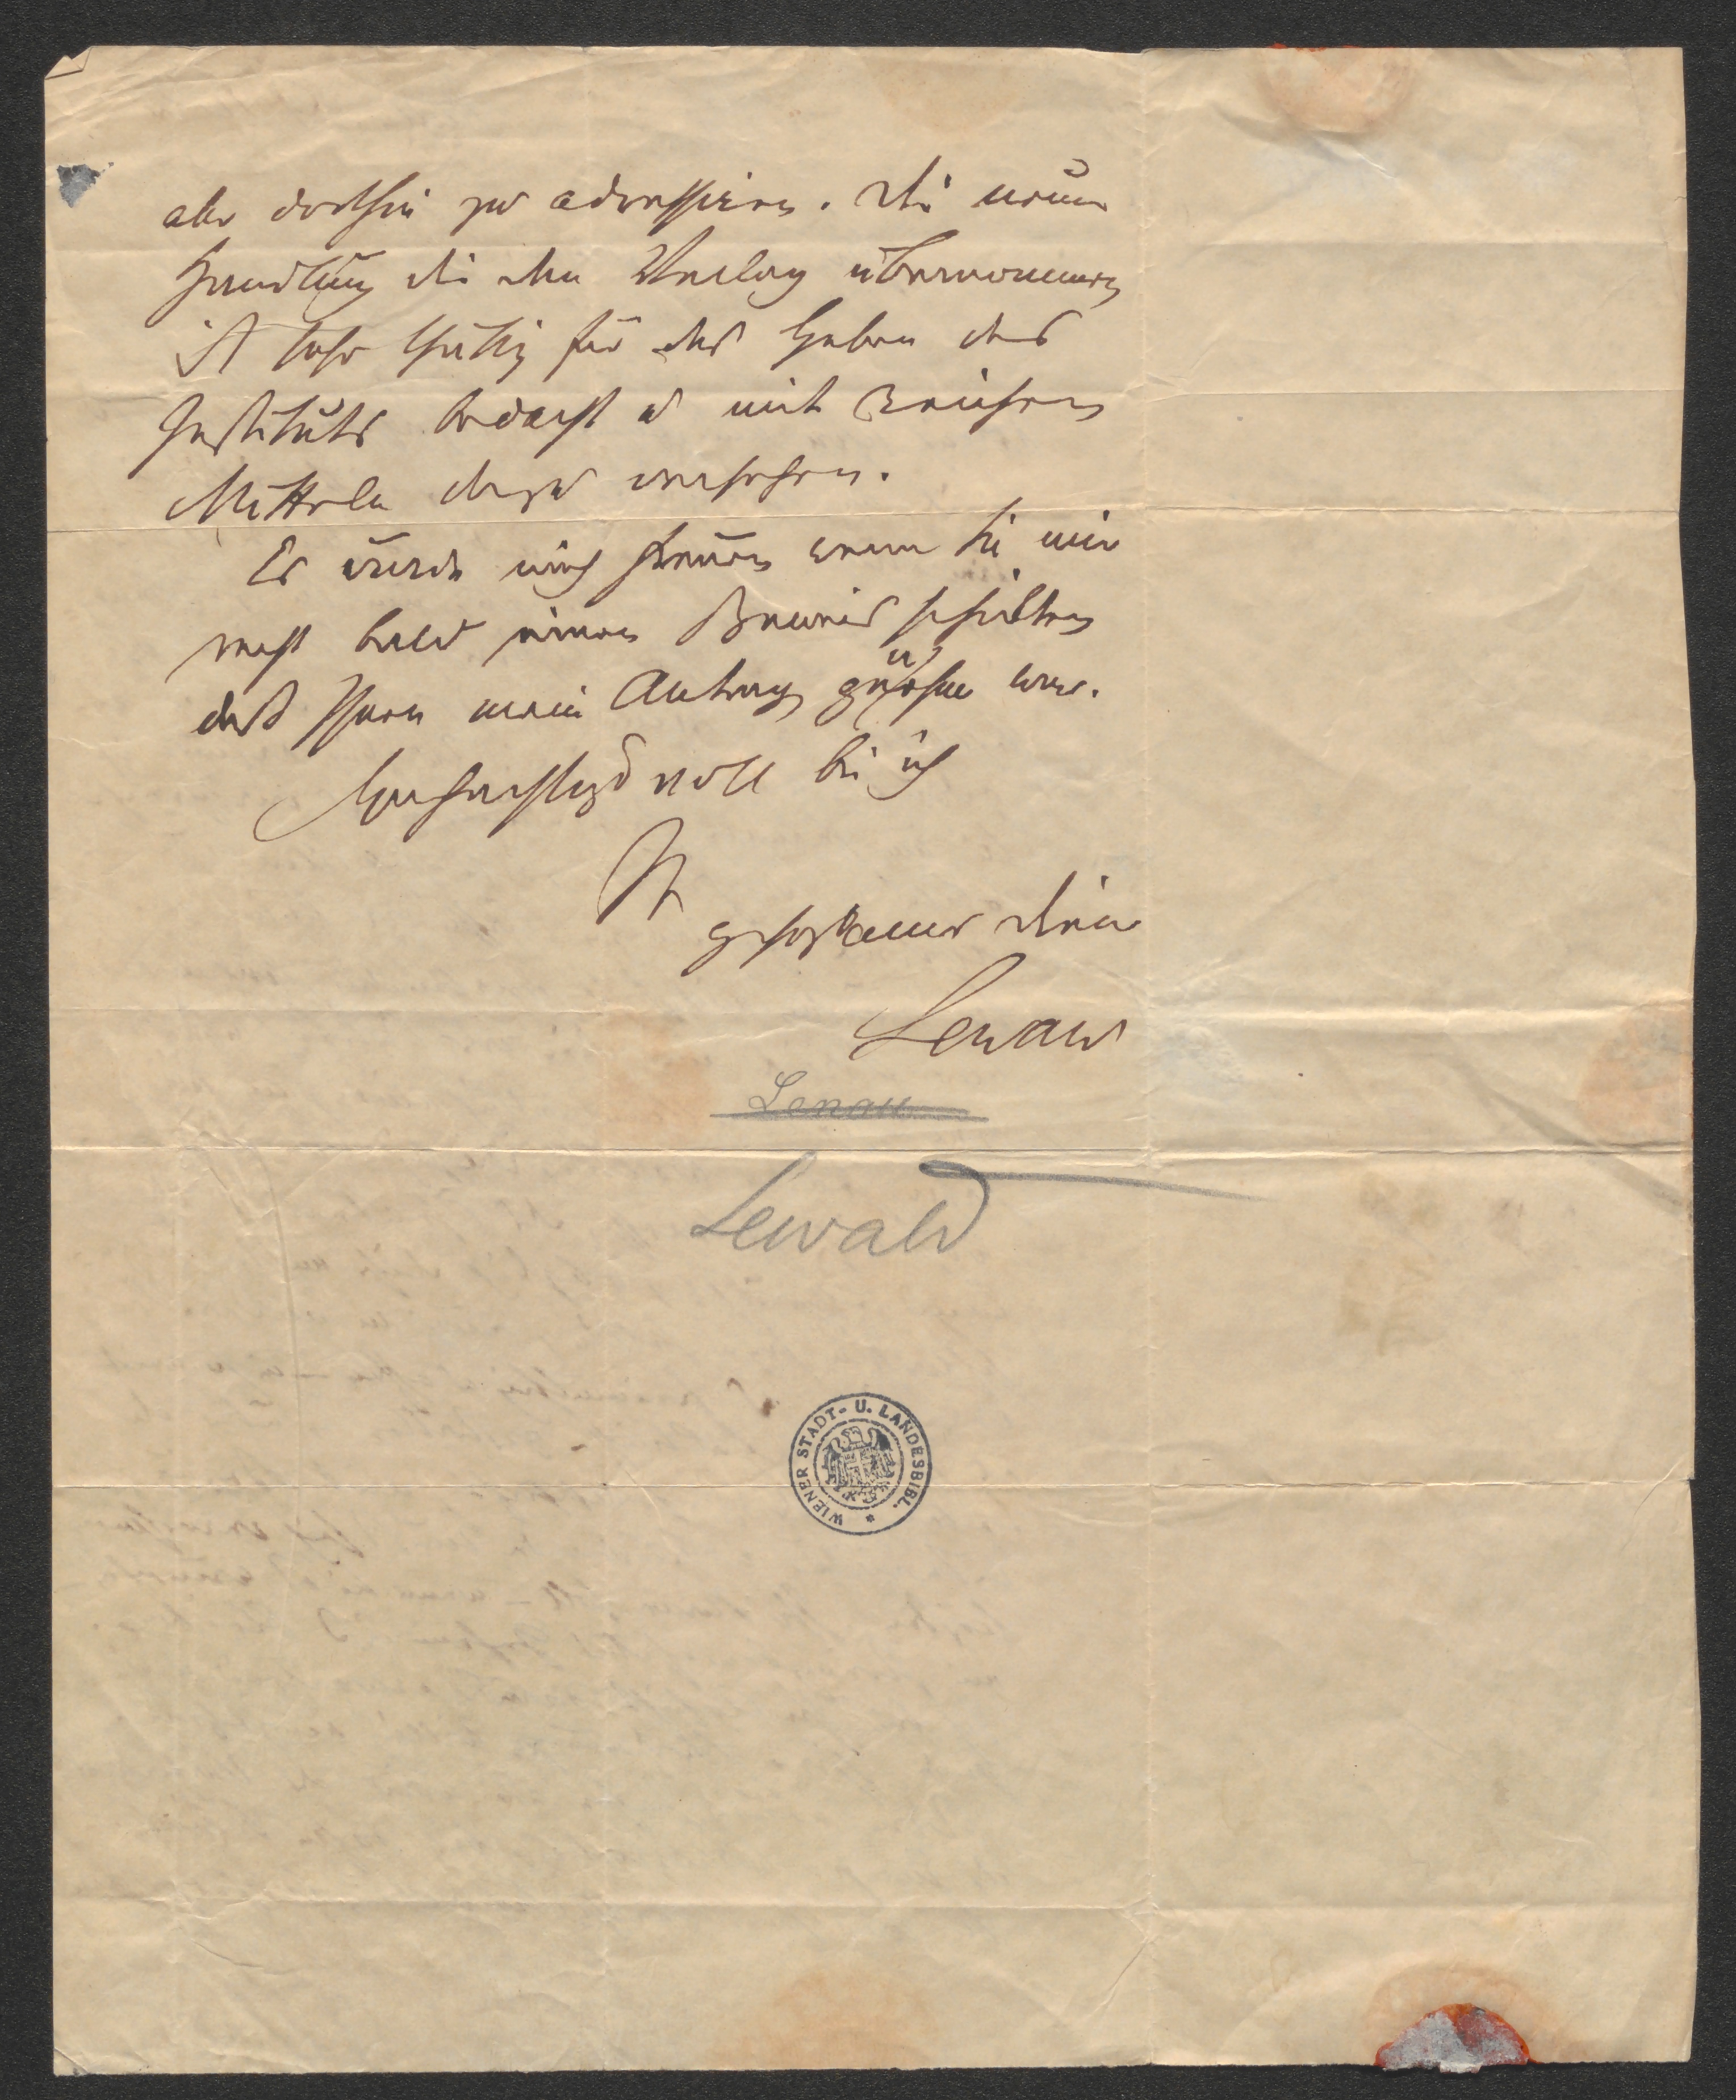 aber dorthin zu adressiren. Die neue
Handlung die den Verlag übernommen
ist sehr thätig für das Heben des
Instituts bedacht u mit reichen
Mitteln dazu versehen.
Es würde mich freuen wenn Sie mir
recht bald einen Beweis schickten
daß Ihnen mein Antrag genehm war.
Hochachtungsvoll bin ich
Ihr
gehorsamer Diener
Lewald
Lenau
Lewald
WIENER STADT- U. LANDESBIBL.